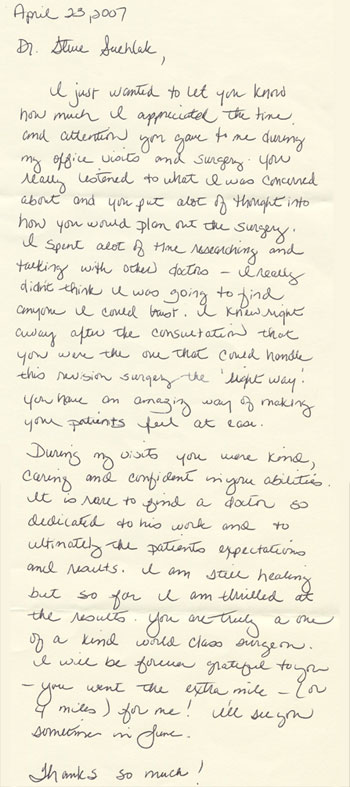 April 23, 2007
Dr. Steve
I just wanted to let you know
how much I appreciated the time
and attention you gave to me during
my office visits and surgery. You
really listened to what I was concerned
about and you put alot of thought into
how you would plan out the surgery.
I spent alot of time researching and
talking with other doctors - I really
didn't think I was going to find
anyone I could trust. I knew right
away after the consultation that
you were the one that could handle
this revision surgery the 'right way'.
You have an amazing way of making
your patients feel at ease.
During my visits you were kind,
caring and confident in your abilities.
It is rare to find a doctor so
dedicated to his work and to
ultimately the patients expectations
and results. I am still healing
but so far I am thrilled at
the results. You are truly a one
of a kind world class surgeon.
I will be forever grateful to you
- you went the extra mile - (or
9 miles) for me! I'll see you
sometime in June.
Thanks so much!